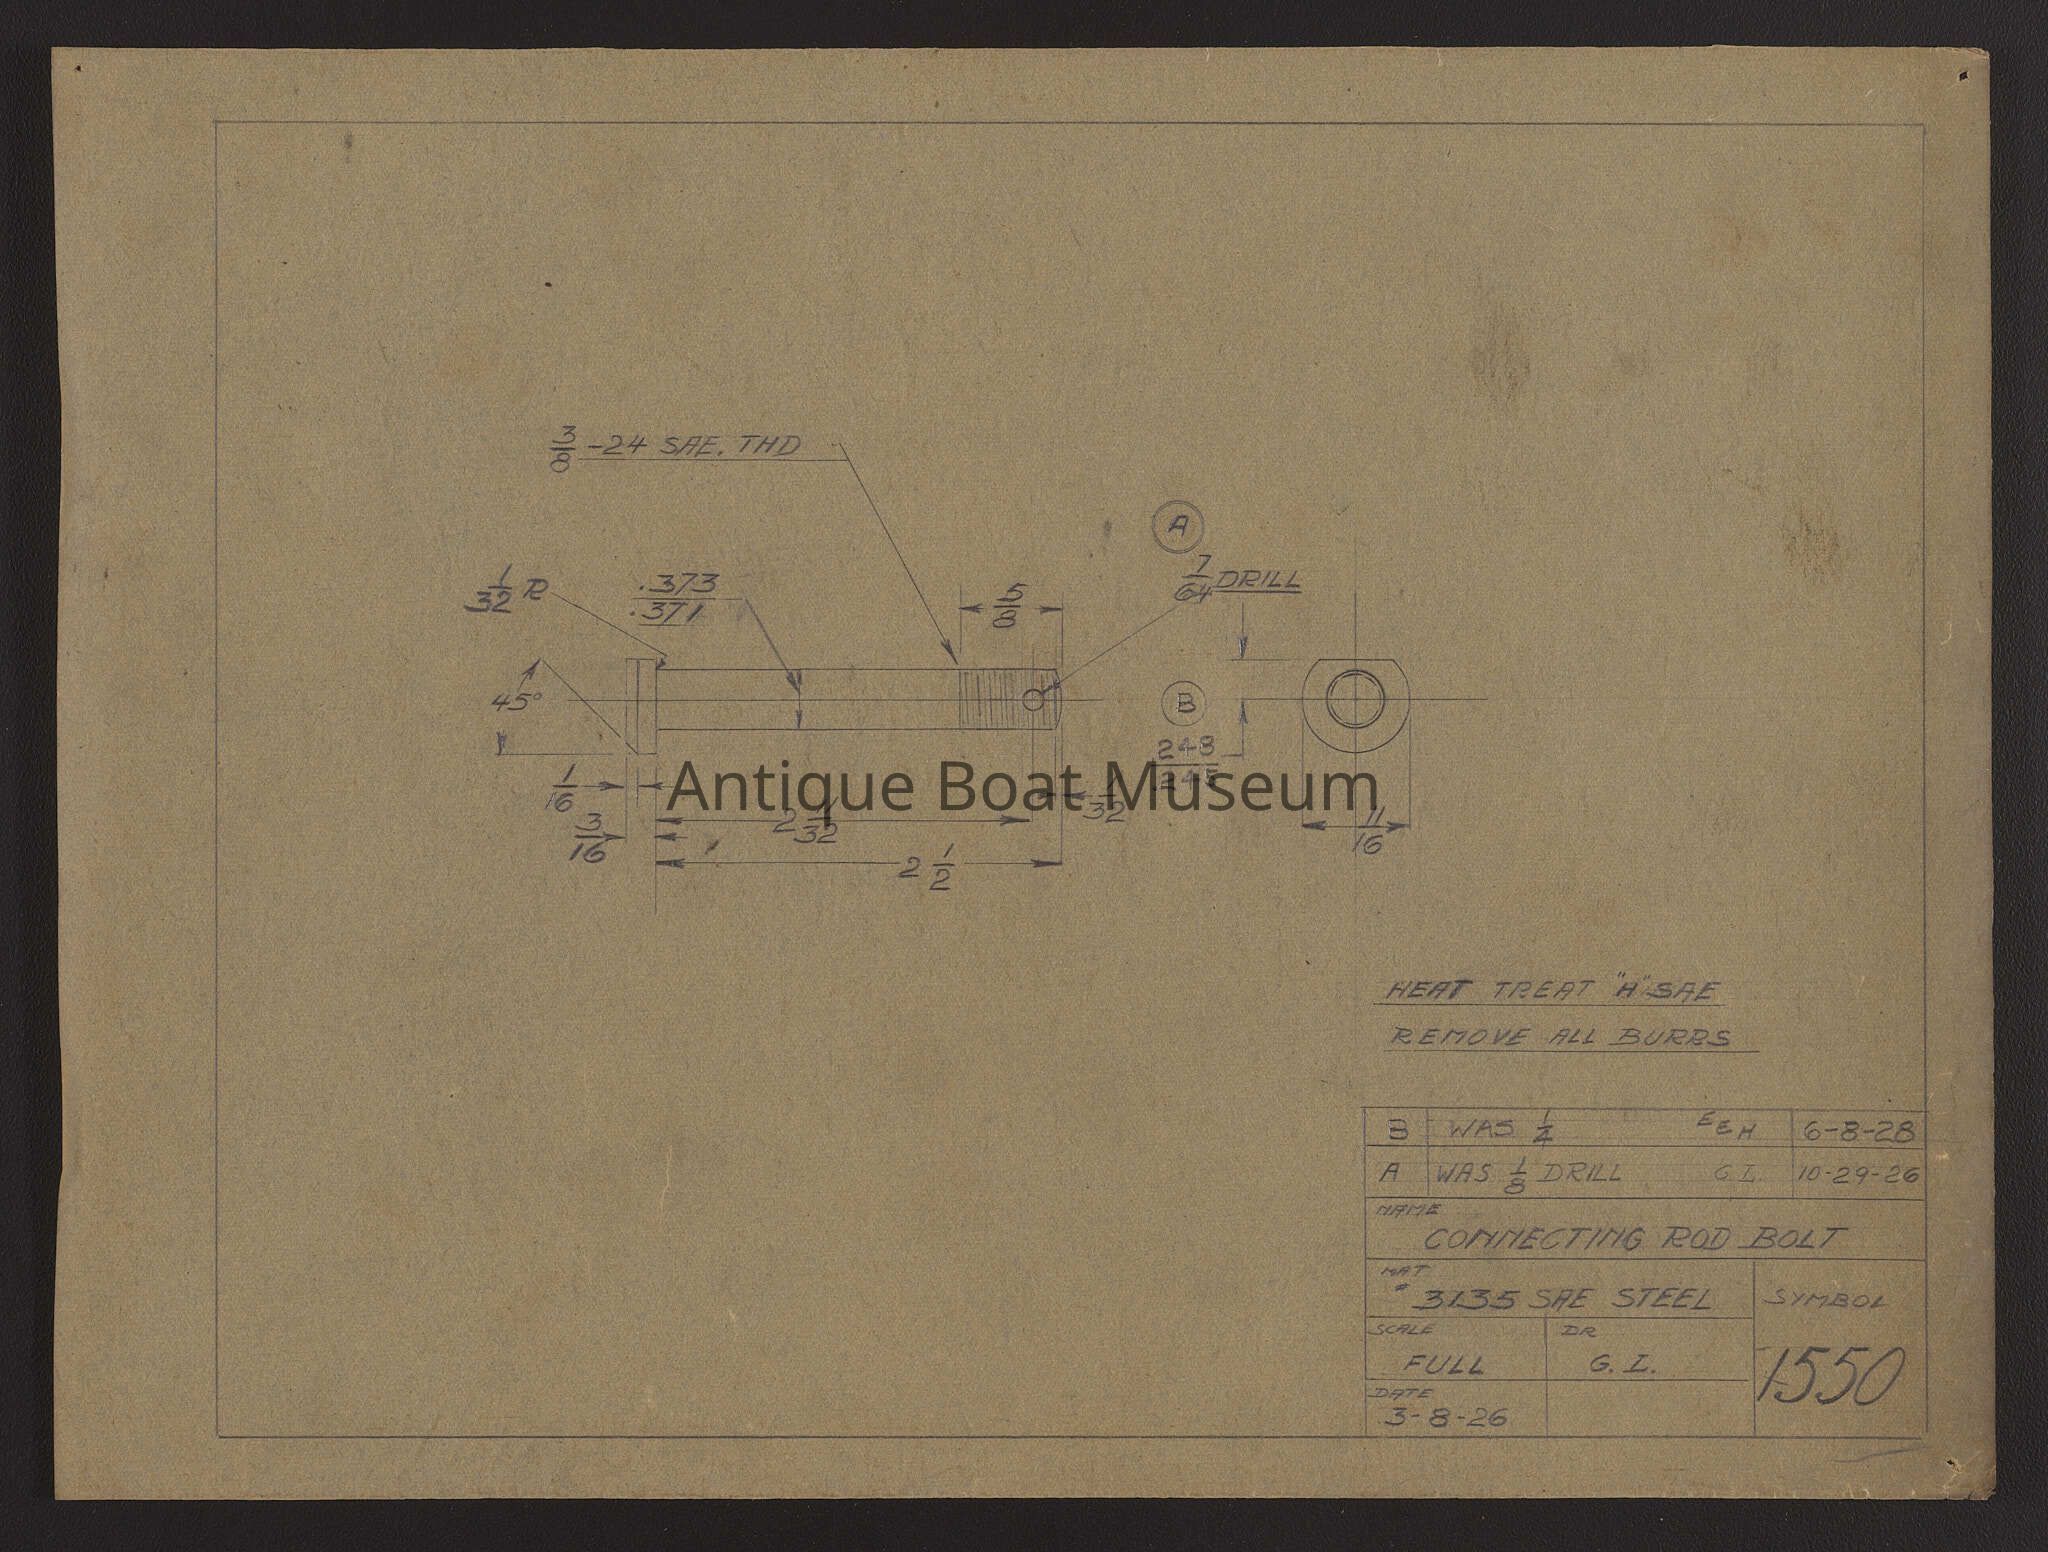 3/8 -24 SAE. THD
A
7/64 DRILL
1/32 R
.373
.371
5/8
45°
B
248
245
1/16
Antique Boat Museum
1/32
3/16
2 11/32
11/16
2 1/2
HEAT TREAT "H" SAE
REMOVE ALL BURRS
B WAS 1/4 EEH 6-8-28
A WAS 1/8 DRILL G.I. 10-29-26
NAME
CONNECTING ROD BOLT
MAT
# 3135 SAE STEEL SYMBOL
SCALE DR
FULL G. I. 1550
DATE
3-8-26